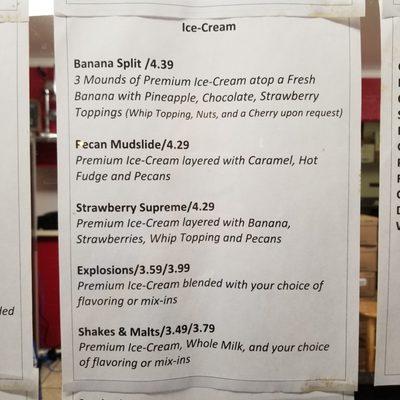 Ice-Cream
Banana Split /4.39
3 Mounds of Premium Ice-Cream atop a Fresh
Banana with Pineapple, Chocolate, Strawberry
Toppings (Whip Topping, Nuts, and a Cherry upon request)
Pecan Mudslide/4.29
Premium Ice-Cream layered with Caramel, Hot
Fudge and Pecans
Strawberry Supreme/4.29
Premium Ice-Cream layered with Banana,
Strawberries, Whip Topping and Pecans
Explosions/3.59/3.99
Premium Ice-Cream blended with your choice of
flavoring or mix-ins
Shakes & Malts/3.49/3.79
Premium Ice-Cream, Whole Milk, and your choice
of flavoring or mix-ins